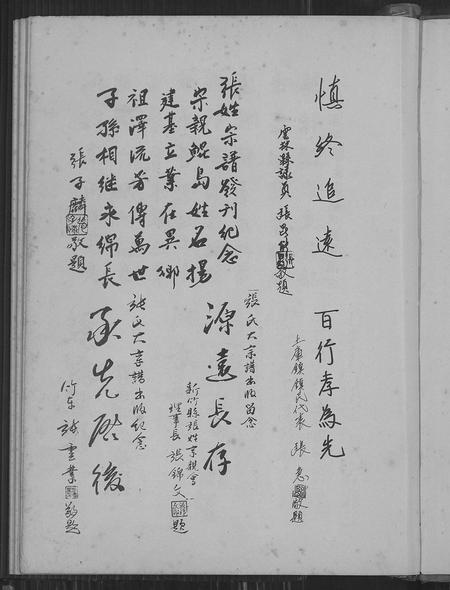 慎終追遠
雲林縣議員 張 敬題
百行孝為先
土庫鎮鎮民代表 張 敬題
張氏大宗譜出版留念
源遠長存
新竹縣張姓宗親會
理事長 張錦文 題
張姓宗譜發刊紀念
宗親鯤島姓名揚
建基立業在異鄉
祖澤流芳傳萬世
子孫相继永綿長
張子麟 敬題
張氏大宗譜出版紀念
承先啓後
竹东 張雲業 敬題